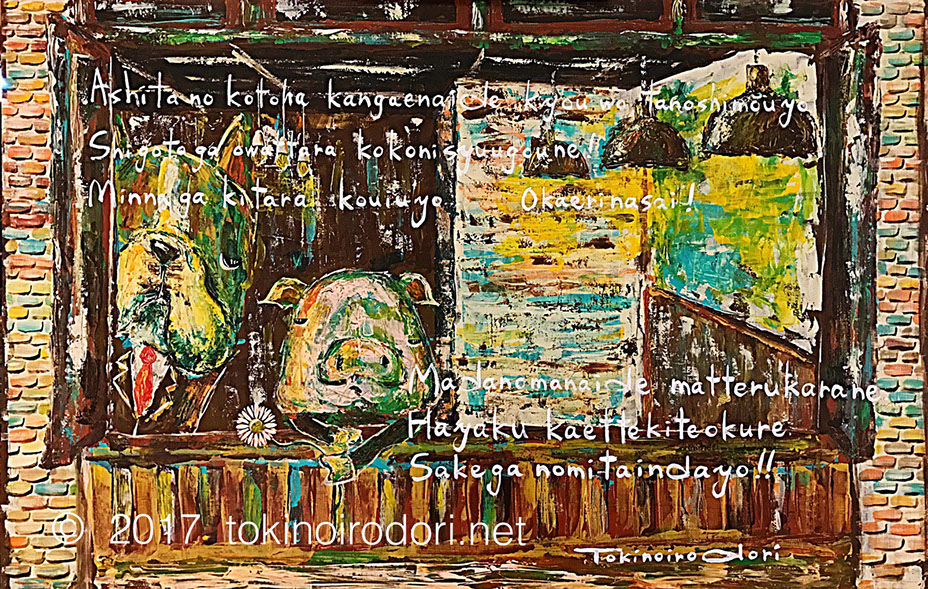 Ashita no kotoha kangaenaide kyou wo tanoshimouyo
Shigotoga owattara kokoni syuugoune!
Minnaga kitara kouiuyo Okaerinasai!
Madanomanaide matterukarane
Hayaku kaettekiteokure
Sakega nomitaindayo!!
© 2017 tokinoirodori.net
Tokinoirodori